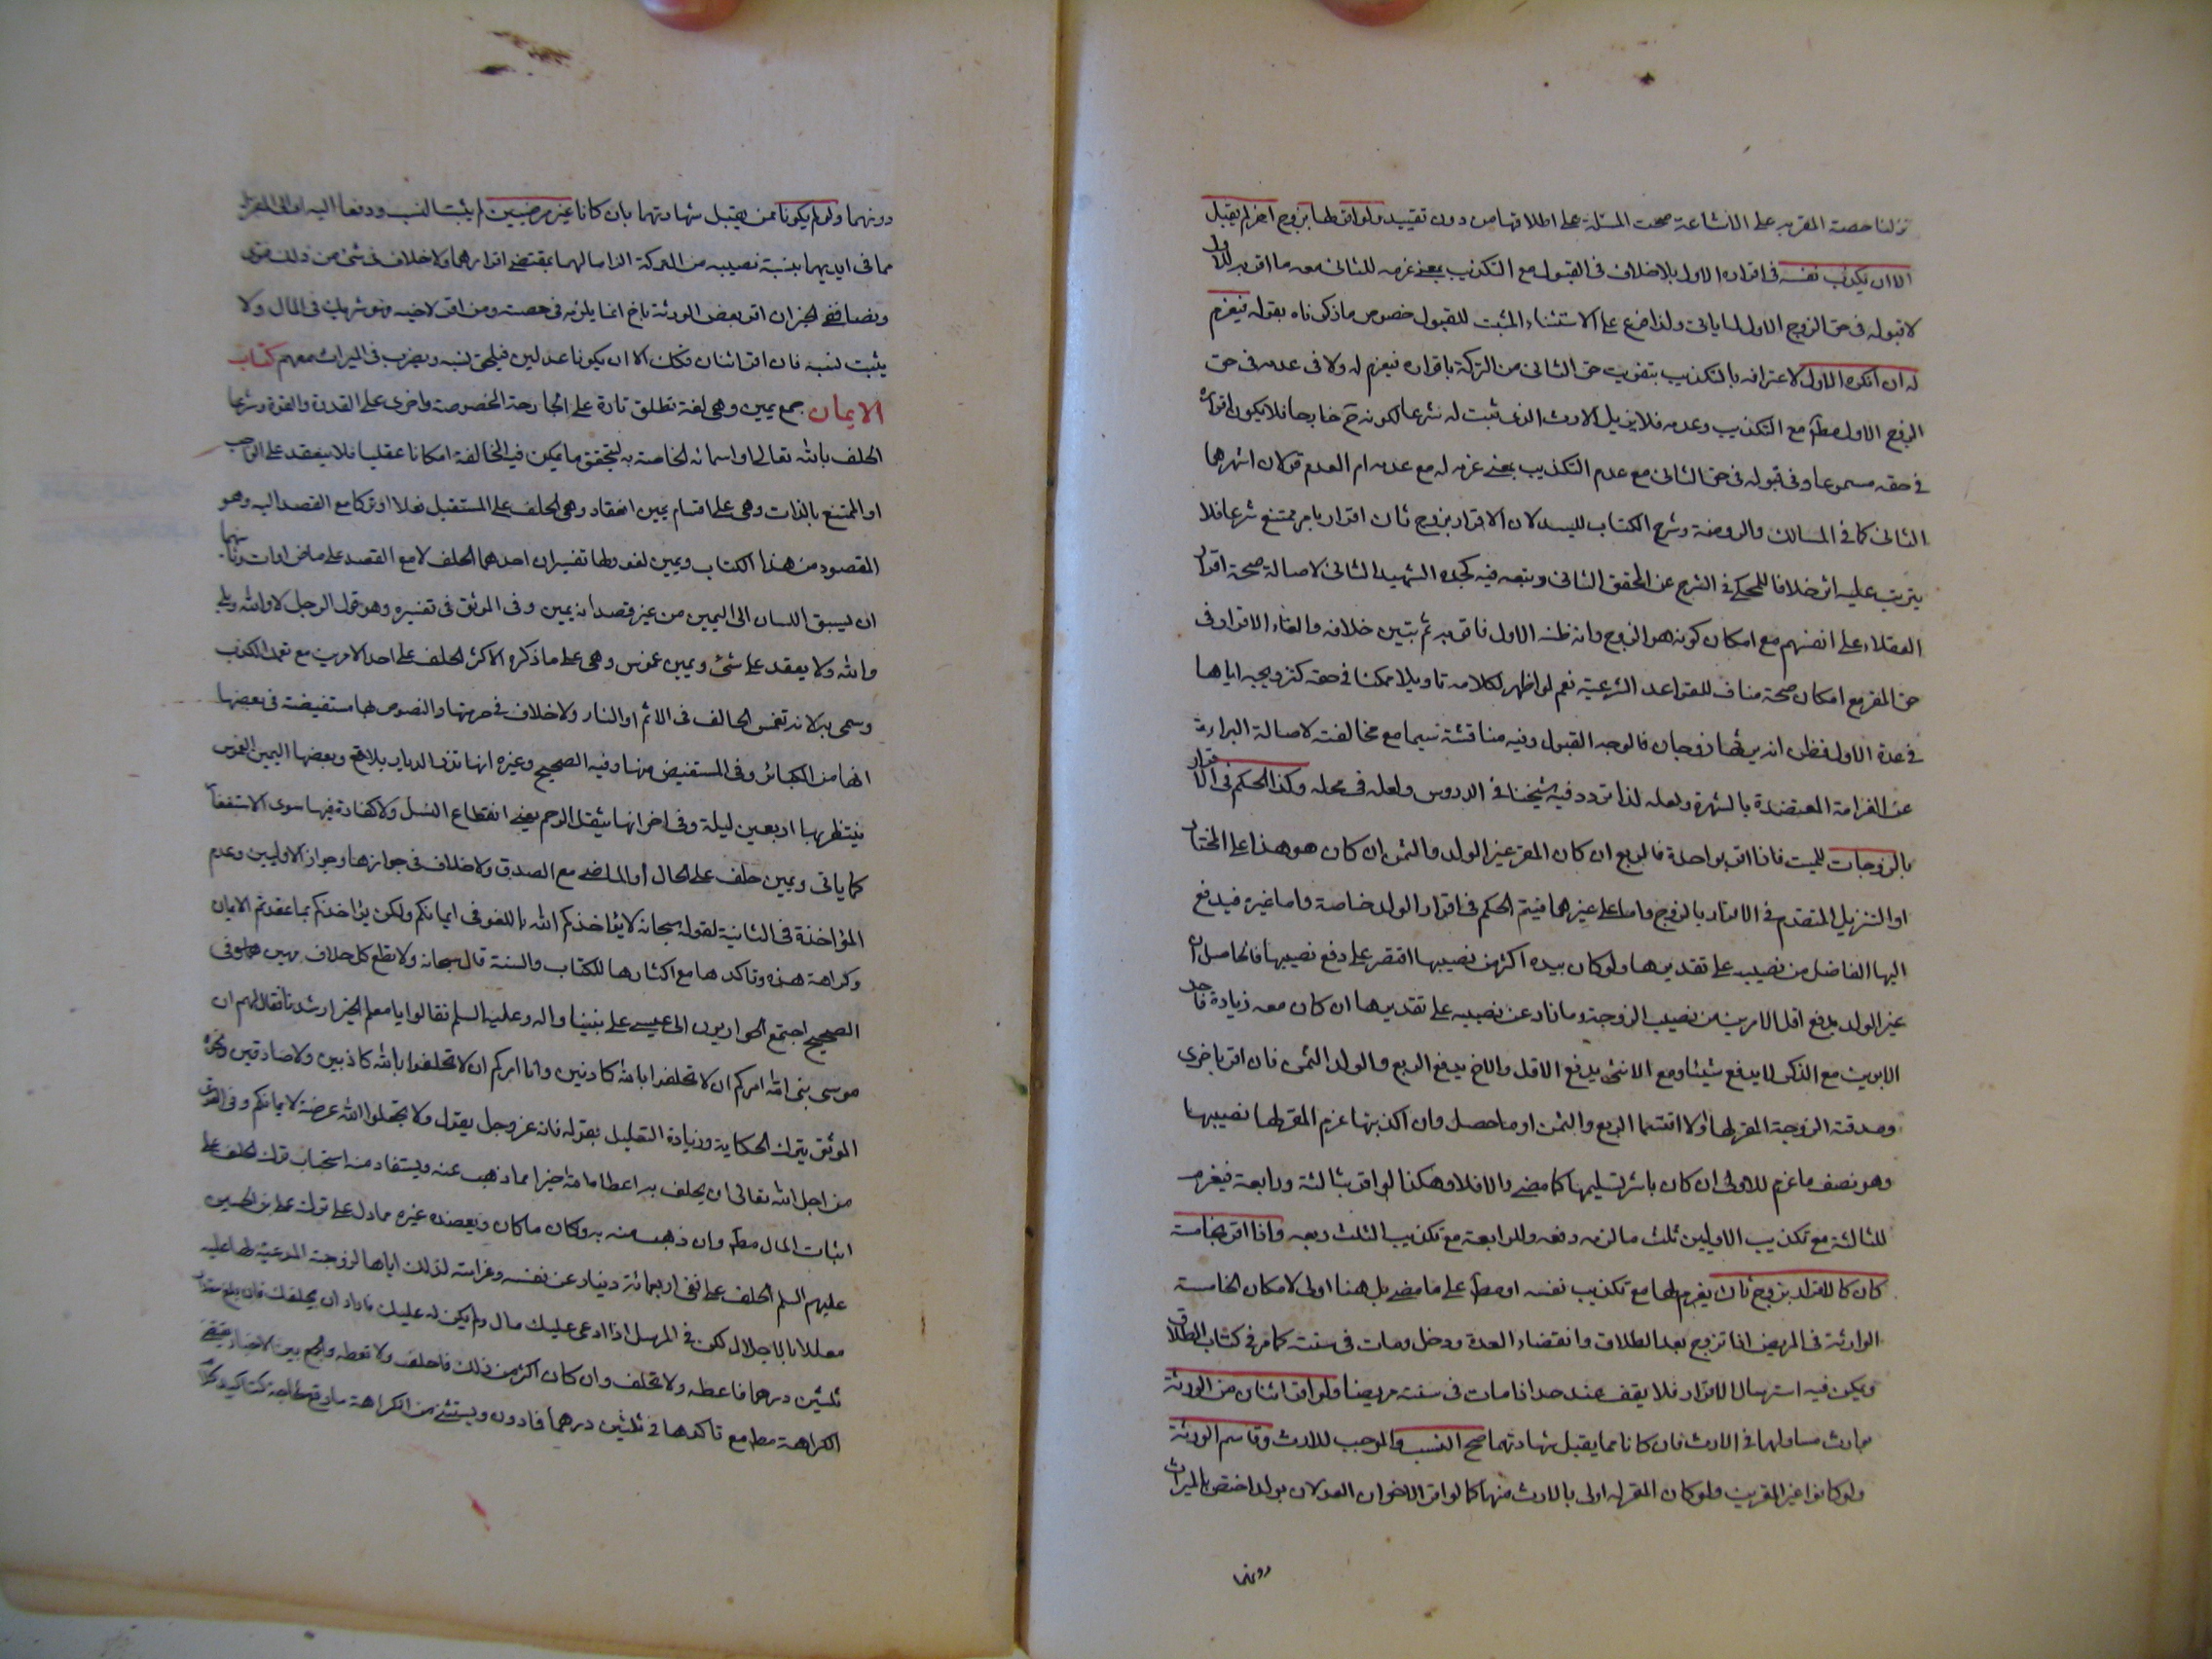 نزلنا حصة المقر به على الاشاعة صحت المسئلة على اطلاقها من دون تقييد ولو اقر لها بزوج اخر لم يقبل
الا ان يكذب نفسه في اقراره الاول بلا خلاف في القبول مع التكذيب بمعنى غرمه للثاني معه ما اقر به للاول
لا قبوله في حق الزوج الاول لما ياتي ولذا فرع على الاستثناء المثبت للقبول خصوص ما ذكرناه بقوله فيغرم
له ان انكره الاول لاعترافه بالتكذيب بتفويت حق الثاني من التركة باقراره فيغرم له ولا في عدمه في حق
الزوج الاول مطلقا مع التكذيب وعدمه فلا يزيل الارث الذي ثبت له شرعا لكونه ح خارجا فلا يكون اقراره
في حقه مسموعا وفي قبوله في حق الثاني مع عدم التكذيب بمعنى غرمه له مع عدمه ام العدم قولان اشهرهما
الثاني كما في المسالك والروضة وشرح الكتاب للسيد لان الاقرار بزوج ثان اقرار بامر ممتنع شرعا فلا
يترتب عليه اثر خلافا للمحكي في الشرح عن المحقق الثاني وتبعه فيه كجده الشهيد الثاني لاصالة صحة اقرار
العقلاء على انفسهم مع امكان كونه هو الزوج وانه ظنه الاول فاقر به ثم تبين خلافه والغاء الاقرار في
حق المقر مع امكان صحته مناف للقواعد الشرعية نعم لو اظهر لكلامه تاويلا ممكنا في حقه كتزويجه اياها
في عدة الاول فظن انه يرثها زوجان فالوجه القبول وفيه مناقشة سيما مع مخالفته لاصالة البراءة
عن الغرامة المعتضدة بالشهرة ولعله لذا تردد فيه شيخنا في الدروس ولعله في محله وكذا الحكم في الاقرار
بالزوجات للميت فاذا اقر بواحدة فالربع ان كان المقر غير الولد والثمن ان كان هو هذا على المختار
او التنزيل المتقدم في الاقرار بالزوج واما على غيرهما فيتم الحكم في اقرار الولد خاصة واما غيره فيدفع
اليها الفاضل من نصيبه على تقديرها ولو كان بيده اكثر من نصيبها اقتصر على دفع نصيبها فالحاصل ان
غير الولد يدفع اقل الامرين من نصيب الزوجة وما زاد عن نصيبه على تقديرها ان كان معه زيادة فاحد
الابوين مع الذكر لا يدفع شيئا ومع الانثى يدفع الاقل والاخ يدفع الربع والولد الثمن فان اقر باخرى
وصدقته الزوجة المقر لها اولا اقتسما الربع والثمن او ما حصل وان اكذبتها غرم المقر لها نصيبها
وهو نصف ما غرم للاولى ان كان باشر تسليمها كما مضى والا فلا وهكذا لو اقر بثالثة ورابعة فيغرم
للثالثة مع تكذيب الاوليين ثلث ما لزمه دفعه وللرابعة مع تكذيب الثلث ربعه واذا اقر بخامسة
كان كالاقرار بزوج ثان يغرم لها مع تكذيب نفسه او مطلقا على ما مضى بل هنا اولى لامكان الخامسة
الوارثة في المريض اذا تزوج بعد الطلاق وانقضاء العدة ودخل ومات في سنته كما مر في كتاب الطلاق
ويمكن فيه استرسال الاقرار فلا يقف عند حد اذا مات في سنته مريضا ولو اقر اثنان من الورثة
بوارث مساو لهما في الارث فان كانا مما يقبل شهادتهما صح النسب والموجب للارث وقاسم الورثة
ولو كانوا غير المقرين ولو كان المقر له اولى بالارث منهما كما لو اقر الاخوان العدلان بولد اختص بالميراث
دونهما
دونهما ولو لم يكونا ممن يقبل شهادتهما بان كانا غير مرضيين لم يثبت النسب ودفعا اليه او الى المقر له
مما في ايديهما بنسبة نصيبه من التركة الزاما لهما بمقتضى اقرارهما ولا خلاف في شئ من ذلك فتوى
ونصا ففي الخبر ان اقر بعض الورثة باخ انما يلزمه في حصته ومن اقر لاخيه فهو شريك في المال ولا
يثبت نسبه فان اقر اثنان فكذلك الا ان يكونا عدلين فيلحق نسبه ويضرب في الميراث معهم كتاب
الايمان جمع يمين وهي لغة تطلق تارة على الجارحة المخصوصة واخرى على القدرة والقوة وشرعا
الحلف بالله تعالى او اسمائه الخاصة به لتحقق ما يمكن فيه المخالفة امكانا عقليا فلا ينعقد على الواجب
او الممتنع بالذات وهي على اقسام يمين انعقاد وهي الحلف على المستقبل فعلا او تركا مع القصد اليه وهو
المقصود من هذا الكتاب ويمين لغو ولها تفسيران احدهما الحلف لا مع القصد على ماض او ات وثانيهما
ان يسبق اللسان الى اليمين من غير قصد انه يمين وفي الموثق في تفسيره وهو قول الرجل لا والله وبلى
والله ولا يعقد على شئ ويمين غموس وهي على ما ذكره الاكثر الحلف على احد الامرين مع تعمد الكذب
وسمى به لانه تغمس الحالف في الاثم او النار ولا خلاف في حرمتها والنصوص بها مستفيضة في بعضها
انها من الكبائر وفي المستفيض منها وفيه الصحيح وغيره انها تذر الديار بلاقع وبعضها اليمين الغموس
ينتظر بها اربعين ليلة وفي اخر انها تثقل الرحم يعني انقطاع النسل ولا كفارة فيها سوى الاستغفار
كما ياتي ويمين حلف على الحال او الماضي مع الصدق ولا خلاف في جوازها وجواز الاوليين وعدم
المؤاخذة في الثانية لقوله سبحانه لا يؤاخذكم الله باللغو في ايمانكم ولكن يؤاخذكم بما عقدتم الايمان
وكراهة هذه وتاكدها مع اكثارها للكتاب والسنة قال سبحانه ولا تطع كل حلاف مهين وفي
الصحيح اجتمع الحواريون الى عيسى على نبينا واله وعليه السلم فقالوا يا معلم الخير ارشدنا فقال لهم ان
موسى نبي الله امركم ان لا تحلفوا بالله كاذبين وانا امركم ان لا تحلفوا بالله كاذبين ولا صادقين ونحوه
الموثق بترك الحكاية وزيادة التعليل بقوله فانه عز وجل يقول ولا تجعلوا الله عرضة لايمانكم وفي القوي
من اجل الله تعالى ان يحلف به اعطاه الله خيرا مما ذهب عنه ويستفاد منه استحباب ترك الحلف على
اثبات المال مطلقا وان ذهب منه به وكان ما كان ويعضده غيره مما دل على ترك علي بن الحسين
عليهم السلم الحلف على نفي اربعمائة دينار عن نفسه وغرامته لذلك اياها لزوجته المدعية لها عليه
معللا بالاجلال لكن في المرسل اذا ادعى عليك مال ولم يكن له عليك فاراد ان يحلفك فان بلغ مقدار
ثلثين درهما فاعطه ولا تحلف وان كان اكثر من ذلك فاحلف ولا تعطه والجمع بين الاخبار يقتضي
الكراهة مطلقا مع تاكدها في ثلثين درهما فادون ويستثنى من الكراهة ما وقع لحاجة كتاكيد كلام